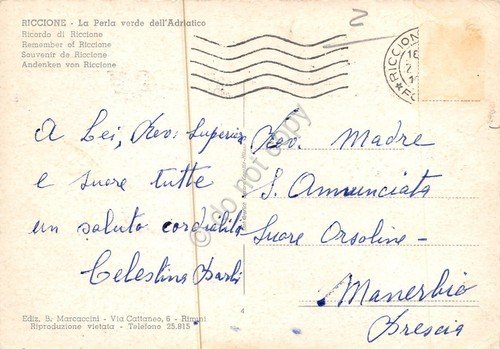 RICCIONE - La Perla verde dell'Adriatico
Ricordo di Riccione
Remember of Riccione
Souvenir de Riccione
Andenken von Riccione
2
RICCION
A Lei, Rev. Superiora
e suore tutte
un saluto cordialità
Celestina
Rev. Madre
S. Annunciata
Suore Orsoline -
Manerbio
Brescia
Ediz. B. Marcaccini - Via Cattaneo, 6 - Rimini
Riproduzione vietata - Telefono 25.815
4
do not copy